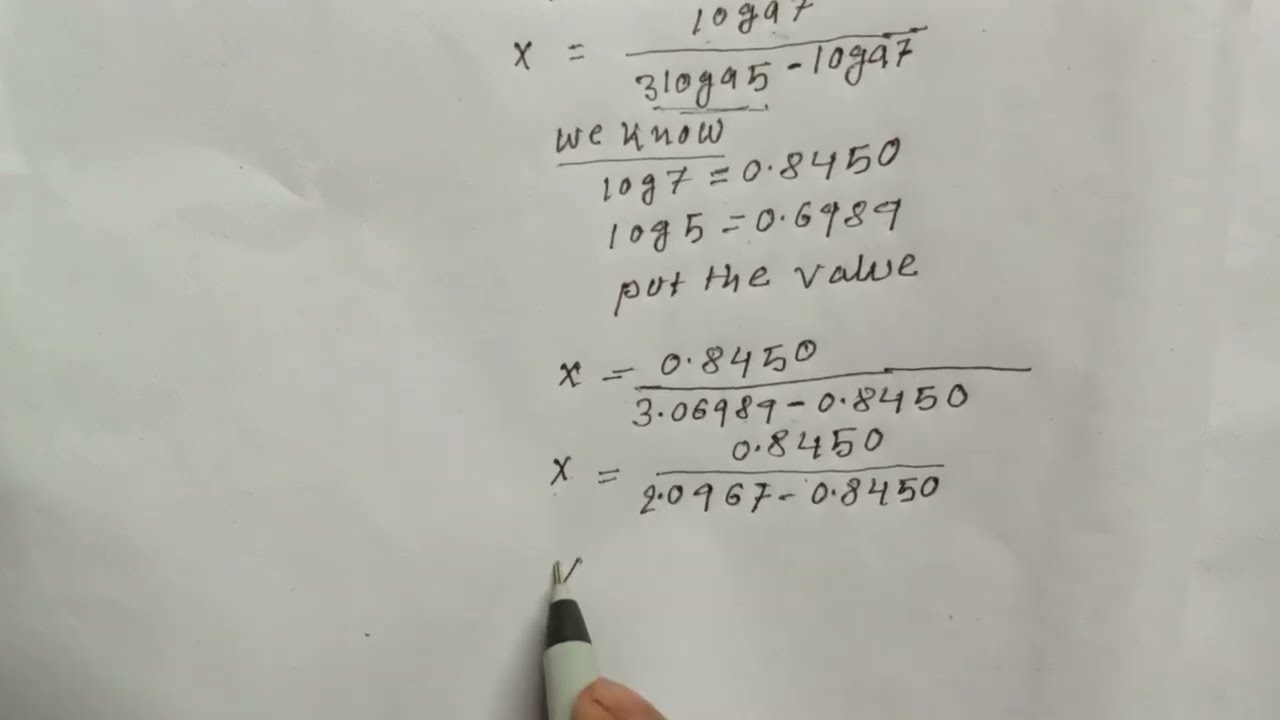 log a 7
x = ———
3 log a 5 - log a 7
we know
log 7 = 0.8450
log 5 = 0.6989
put the value
x = 0.8450
3.06989 - 0.8450
0.8450
x = ———
2.0967 - 0.8450